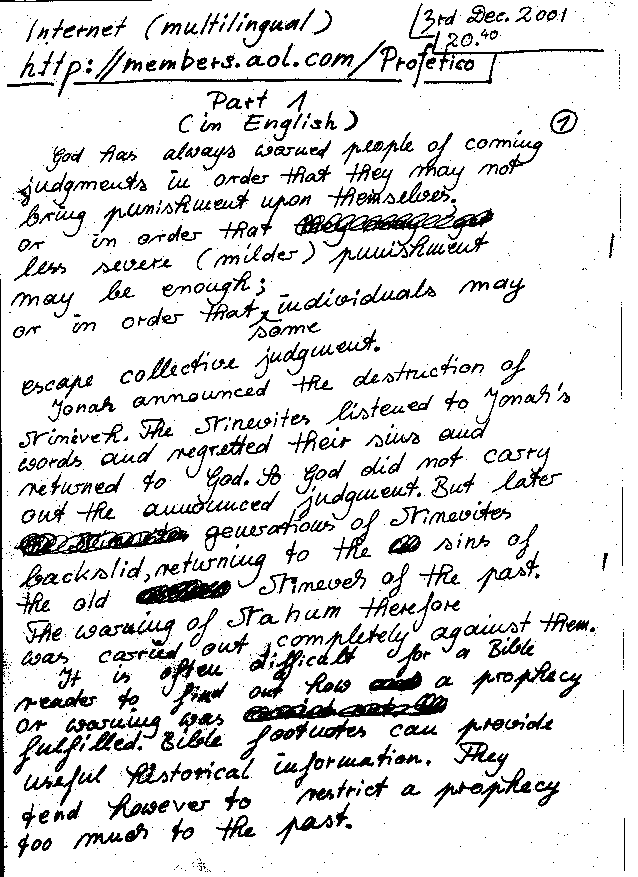 Internet (multilingual)
3rd Dec. 2001
20.40
http://members.aol.com/Profetico
Part 1
(in English)
1
God has always warned people of coming
judgments in order that they may not
bring punishment upon themselves.
or in order that
less severe (milder) punishment
may be enough;
or in order that some individuals may
escape collective judgment.
Jonah announced the destruction of
Nineveh. The Ninewites listened to Jonah's
words and regretted their sins and
returned to God. So God did not carry
out the announced judgment. But later
generations of Ninewites
backslid, returning to the sins of
the old Nineveh of the past.
The warning of Nahum therefore
was carried out completely against them.
It is often difficult for a Bible
reader to find out how a prophecy
or warning was
fulfilled. Bible footnotes can provide
useful historical information. They
tend however to restrict a prophecy
too much to the past.